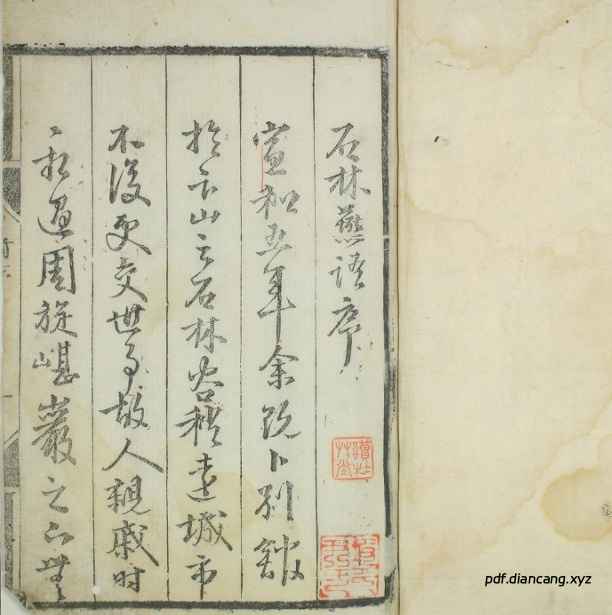 石林燕語序
宣和五年余既卜別館
於卞山之石林谷稍遠城市
不復更交世事故人親戚時
時相過周旋嵁巖之下無
pdf.diancang.xyz